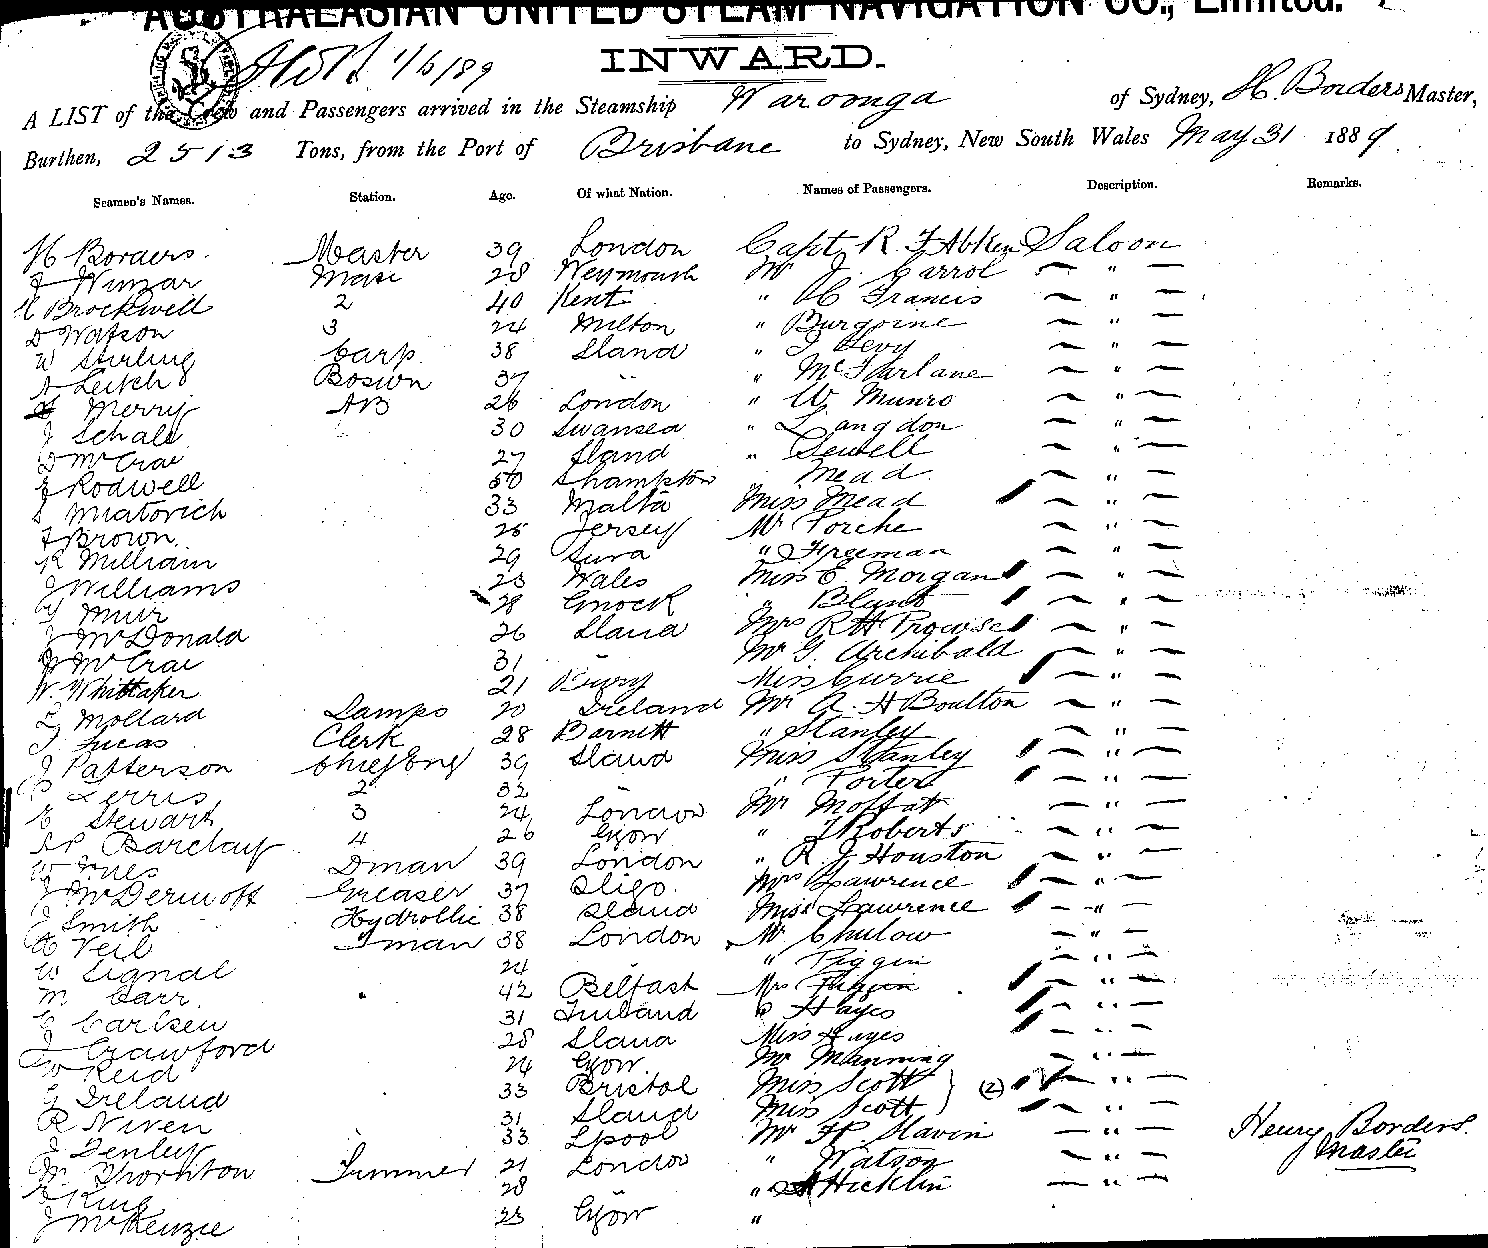 AUSTRALASIAN UNITED STEAM NAVIGATION CO., Limited.
1/6/89 INWARD.
A LIST of the Crew and Passengers arrived in the Steamship Waroonga of Sydney, H. Borders Master,
Burthen, 2513 Tons, from the Port of Brisbane to Sydney, New South Wales May 31 1889.
Seamen's Names. Station. Age. Of what Nation. Names of Passengers. Description. Remarks.
H Borders. Master 39 London Capt. R. Saloon
J 28 Weymouth Mr J. Carrol — " —
Brockwell 2 40 Kent " Francis — " —
D Watson 3 24 Milton " Burgoine — " —
W Stirling Carp. 38 Sland " J Levy — " —
A Leitch Bosun 37 " " McFarlane — " —
Merry AB 26 London " W. Munro — " —
J 30 Swansea " Langdon — " —
D McCrae 27 Sland " Sewell — " —
J Rodwell 50 Shampton Mead — " —
S Miatovich 33 Malta Miss Mead — " —
J Brown. 25 Jersey Mr Porche — " —
R Milliam 29 " Freeman — " —
J Williams 23 Wales Miss E. Morgan — " —
Muir 28 Gnock " — " —
J McDonald 26 Sland Mrs R H Prowse — " —
McCrae 31 Mr G. Archibald — " —
W. Whittaker 21 Bury Miss Currie — " —
Mollard Lamps 20 Ireland Mr A. H Boulton — " —
J Lucas Clerk 28 Barnett " Stanley — " —
J Patterson Chief Eng 39 Sland Miss Stanley — " —
2 32 " " Porter — " —
Stewart 3 24 London Mr Moffat — " —
Barclay 4 26 Gow " J Roberts — " —
W Dman 39 London " R. J Houston — " —
J McDermott Greaser 37 Sligo. Mrs Lawrence — " —
J Smith Hydrollic 38 Sland Miss Lawrence — " —
Veil Fman 38 London Mr — " —
W Signal 24 " " Piggin — " —
M Carr. 42 Belfast Mrs Piggin — " —
Carlsen 31 Finland " Hayes — " —
J Crawford 28 Sland Miss Hayes — " —
W Reid 24 Mr Manning — " —
G Ireland 33 Bristol Miss Scott } (2) — " —
R Niven 31 Sland Miss Scott — " —
J Fenley 33 Lpool Mr Slavin — " — Henry Borders.
Thornton Trimmer 21 London " Watson — " — Master
King 28 " Hicklin — " —
J McKenzie 23 "